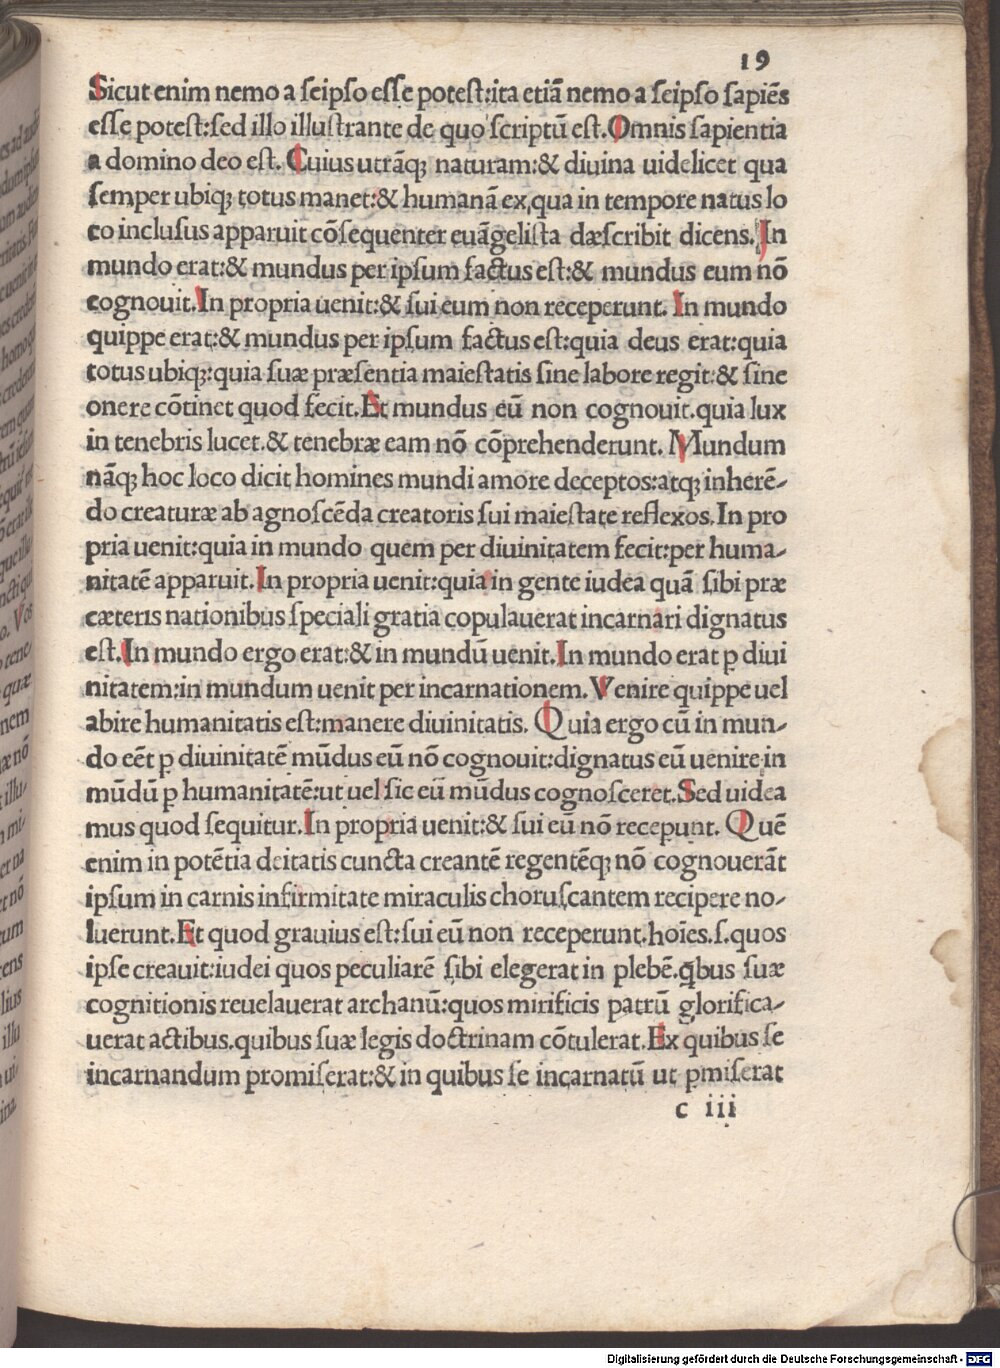 19
Sicut enim nemo a ſeipſo eſſe poteſt:ita etiā nemo a ſeipſo ſapiēs
eſſe poteſt:ſed illo illuſtrante de quo ſcriptū eſt.Omnis ſapientia
a domino deo eſt. Cuius utrāqꝫ naturam:& diuina uidelicet qua
ſemper ubiqꝫ totus manet:& humanā ex qua in tempore natus lo
co incluſus apparuit cōſequenter euāgeliſta dæſcribit dicens. In
mundo erat:& mundus per ipſum factus eſt:& mundus eum nō
cognouit.In propria uenit:& ſui eum non receperunt. In mundo
quippe erat:& mundus per ipſum factus eſt:quia deus erat:quia
totus ubiqꝫ:quia ſuæ præſentia maieſtatis ſine labore regit:& ſine
onere cōtinet quod fecit.Et mundus eū non cognouit.quia lux
in tenebris lucet.& tenebræ eam nō cōprehenderunt. Mundum
nāqꝫ hoc loco dicit homines mundi amore deceptos:atqꝫ inherē-
do creaturæ ab agnoſcēda creatoris ſui maieſtate reflexos.In pro
pria uenit:quia in mundo quem per diuinitatem fecit:per huma-
nitatē apparuit. In propria uenit:quia in gente iudea quā ſibi præ
cæteris nationibus ſpeciali gratia copulauerat incarnari dignatus
eſt.In mundo ergo erat:& in mundū uenit.In mundo erat ꝑ diui
nitatem:in mundum uenit per incarnationem. Venire quippe uel
abire humanitatis eſt:manere diuinitatis. Quia ergo cū in mun-
do eēt ꝑ diuinitatē mūdus eū nō cognouit:dignatus eū uenire in
mūdū ꝑ humanitatē:ut uel ſic eū mūdus cognoſceret.Sed uidea
mus quod ſequitur.In propria uenit:& ſui eū nō recepunt. Quē
enim in potētia deitatis cuncta creantē regentēqꝫ nō cognouerāt
ipſum in carnis infirmitate miraculis choruſcantem recipere no-
luerunt.Et quod grauius eſt:ſui eū non receperunt.hoīes.ſ.quos
ipſe creauit:iudei quos peculiarē ſibi elegerat in plebē.qͥbus ſuæ
cognitionis reuelauerat archanū:quos mirificis patrū glorifica-
uerat actibus.quibus ſuæ legis doctrinam cōtulerat.Ex quibus ſe
incarnandum promiſerat:& in quibus ſe incarnatū ut ꝓmiſerat
c iii
Digitalisierung gefördert durch die Deutsche Forschungsgemeinschaft - DFG